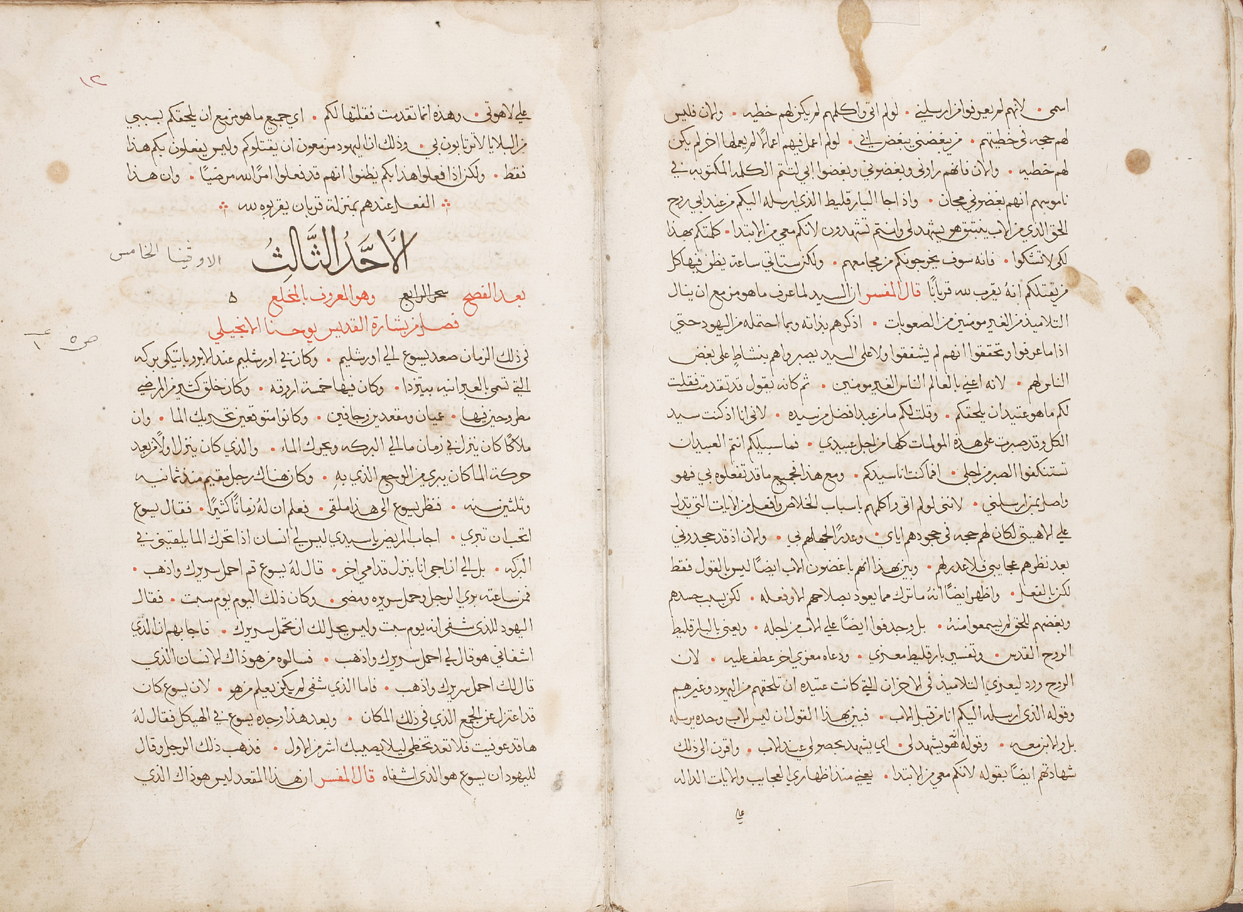 اسمي · لانهم لم يعرفوا من ارسلني · لو لم اتي واكلمهم لم يكن لهم خطيه · والان فليس
لهم حجه في خطيتهم · من يبغضني يبغض ابي · لو لم اعمل فيهم اعمالًا لم يعملها اخر لم يكن
لهم خطيه · والان فانهم راوني وبغضوني وبغضوا ابي لتتم الكلمه المكتوبه في
ناموسهم انهم بغضوني مجان · واذا جا البارقليط الذي ارسله اليكم من عند ابي روح
الحق الذي من الاب ينبثق هو يشهد لي وانتم تشهدون لانكم معي من الابتدا · كلمتكم بهذا
لكي لا تشكوا · فانه سوف يخرجونكم من مجامعهم · ولكن ستاتي ساعة يظن فيها كل
من يقتلكم انهُ يقرب لله قربانًا قال المفسر ان السيد لما عرف ما هو مزمع ان ينال
التلاميذ من الغير مومنين من الصعوبات · اذكرهم بذاته وبما احتمله من اليهود حتى
اذا ما عرفوا وتحققوا انهم لم يشفقوا ولا على السيد يصبروا هم بنشاطٍ على بغض
الناس لهم · لانه اعني بالعالم الناس الغير مومنين · ثم كانه يقول قد تقدمت فقلت
لكم ما هو عتيد ان يلحقكم · وقلت لكم ما من عبد افضل من سيده · لاني انا اذ كنت سيد
الكل وقد صبرت على هذه المولمات كلها من اجل عبيدي · فما سبيلكم انتم العبيد ان
تستنكفوا الصبر من اجلي · افما كنت انا سيدكم · ومع هذا فجميع ما قد تفعلوه بي فهو
واصل لمن ارسلني · لانني لو لم اتي واكلمهم باسباب الخلاص وافعل من الايات التي تدل
علي الاهيتي لكان لهم حجه في جحودهم اياي · وعذرًا لجهلهم بي · والان اذ قد جحدوني
بعد نظرهم عجايبي فلا عذر لهم · وبين بهذا انهم باغضون الاب ايضًا ليس بالقول فقط
لكن بالفعل · واظهر ايضًا انهُ ما ترك مما يعود بصلاحهم الا وفعله · لكن بسبب حسدهم
وبغضهم للحق لم يسمعوا منهُ · بل وجدفوا ايضًا على الاب من اجله · ويعني بالبارقليط
الروح القدس · وتفسير بارقليط معزي · ودعاه معزي اخر عطف عليه · لان
الروح ورد ليعزي التلاميذ في الاحزان التي كانت عتيده ان تلحقهم من اليهود وغيرهم
وقوله الذي ارسله اليكم انا من قبل الاب · فبين بهذا القول ان ليس الاب وحده يرسله
بل والابن معه · وقوله فهو يشهد لي · اي يشهد بحصولي عند الاب · واقرن الى ذلك
شهادتهم ايضًا بقوله لانكم معي من الابتدا · يعني منذ اظهاري العجايب والايات الداله
علي
١٢
علي لاهوتي · وهذه انما تقدمت فقلتها لكم · اي جميع ما هو مزمع ان يلحقكم بسببي
من البلايا لا ترتابون بي · وذلك ان اليهود مزمعون ان يقتلوكم وليس يفعلون بكم هذا
فقط · ولكن اذا فعلوا هذا بكم يظنوا انهم قد فعلوا امرًا لله مرضيًا · وان هذا
الفعل عندهم بمنزلة قربان يقربوه لله
الاَحَدُ الثَّالِثُ
الاوقينا الخامس
بعد الفصح سحر الرابع وهو المعروف بالمخلع ٥
فصل من بشارة القديس يوحنا الانجيلي
في ذلك الزمان صعد يسوع الي اورشليم · وكان في اورشليم عند الابروباتيكي بركه
التي تسمي بالعبرانيه بيتزدا · وكان فيها خمسة اروقه · وكان خلق كثير من المرضي
مطروحين فيها · عميان ومقعدين وجافين · وكانوا متوقعين تحريك الما · وان
ملاكًا كان ينزل في زمان ما الي البركه ويحرك الماء · والذي كان ينزل اولًا من بعد
حركة الما كان يبري من الوجع الذي بهِ · وكان هناك رجل مقيم منذ ثمانيه
وثلثين سنه · فنظر يسوع الي هذا ملقي · فعلم ان لهُ زمانًا كثيرًا · فقال يسوع
اتحب ان تبري · اجاب المريض يا سيدي ليس لي انسان اذا تحرك الما يلقيني في
البركه · بل الي ان اجي انا ينزل قدامي اخر · قال لهُ يسوع قم احمل سريرك واذهب ·
فمن ساعته بري الرجل وحمل سريره ومضي · وكان ذلك اليوم يوم سبت · فقال
اليهود للذي شفي انه يوم سبت وليس يحل لك ان تحمل سريرك · فاجابهم ان الذي
اشفاني هو قال لي احمل سريرك واذهب · فسالوه من هو ذاك الانسان الذي
قال لك احمل سريرك واذهب · فاما الذي شفي لم يكن يعلم من هو · لان يسوع كان
قد اعتزل عن الجمع الذي في ذلك المكان · وبعد هذا وجده يسوع في الهيكل فقال لهُ
ها قد عوفيت فلا تعد تخطي ليلا يصيبك اشر من الاول · فذهب ذلك الرجل وقال
لليهود ان يسوع هو الذي اشفاه قال المفسر ان هذا المقعد ليس هو ذاك الذي